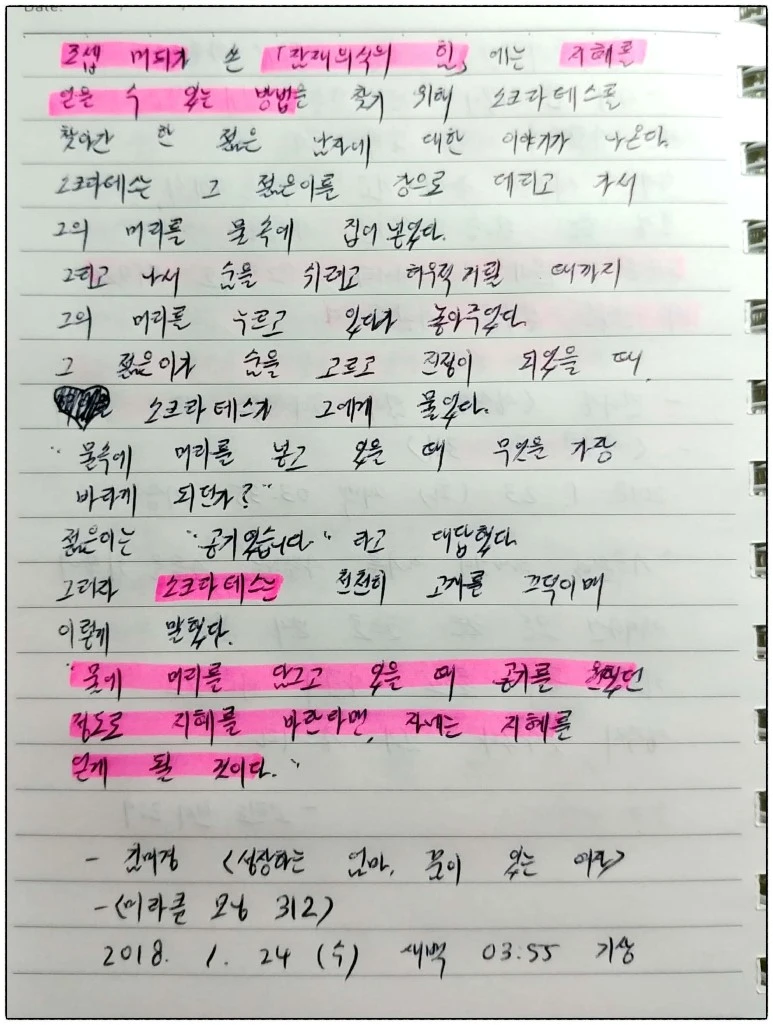 Date:
조셉 머피가 쓴 「잠재의식의 힘」에는 지혜를
얻을 수 있는 방법을 찾기 위해 소크라테스를
찾아간 한 젊은 남자에 대한 이야기가 나온다.
소크라테스는 그 젊은이를 강으로 데리고 가서
그의 머리를 물 속에 집어 넣었다.
그리고 나서 숨을 쉬려고 허우적거릴 때까지
그의 머리를 누르고 있다가 놓아주었다.
그 젊은이가 숨을 고르고 진정이 되었을 때,
소크라테스가 그에게 물었다.
"물속에 머리를 넣고 있을 때 무엇을 가장
바라게 되던가?"
젊은이는 "공기였습니다" 라고 대답했다.
그러자 소크라테스는 천천히 고개를 끄덕이며
이렇게 말했다.
"물에 머리를 담그고 있을 때 공기를 원했던
정도로 지혜를 바란다면, 자네는 지혜를
얻게 될 것이다."
- 김미경 <성장하는 엄마, 꿈이 있는 여자>
- <미라클 모닝 312>
2018. 1. 24 (수) 새벽 03:55 기상